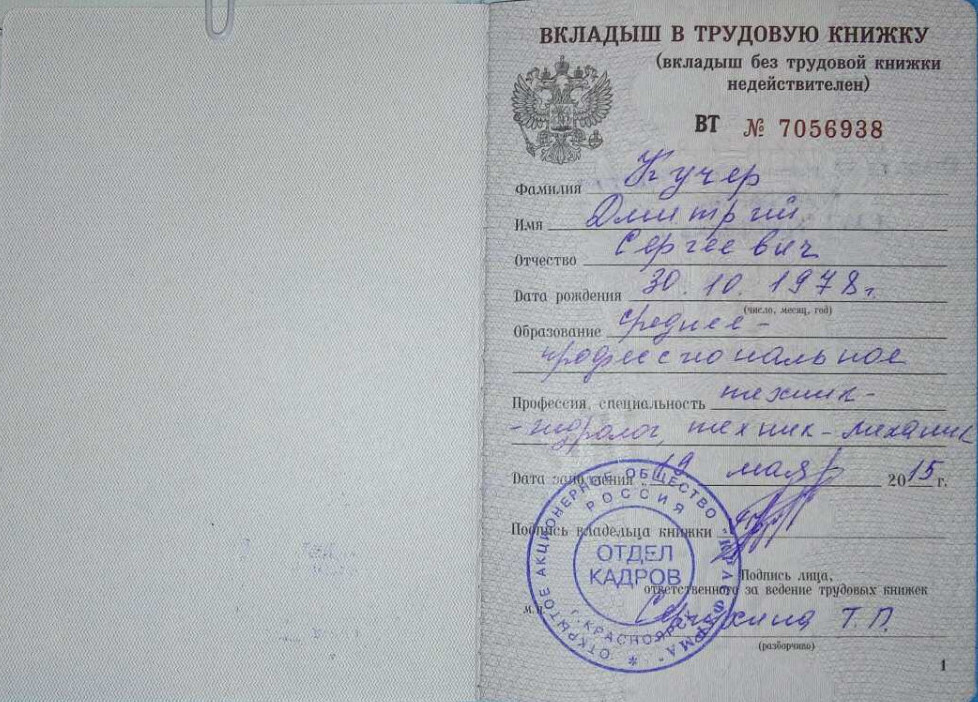 ВКЛАДЫШ В ТРУДОВУЮ КНИЖКУ
(вкладыш без трудовой книжки
недействителен)
ВТ № 7056938
Фамилия Кучер
Имя Дмитрий
Отчество Сергеевич
Дата рождения 30.10.1978г.
(число, месяц, год)
Образование среднее-
профессиональное
Профессия, специальность техник-
-гидролог, техник-механик
Дата заполнения "19 мая 2015 г.
Подпись владельца книжки
Подпись лица,
ответственного за ведение трудовых книжек
м.п. Т.П.
(разборчиво)
1
ОТКРЫТОЕ АКЦИОНЕРНОЕ ОБЩЕСТВО
РОССИЯ
ОТДЕЛ
КАДРОВ
г.КРАСНОЯРСК